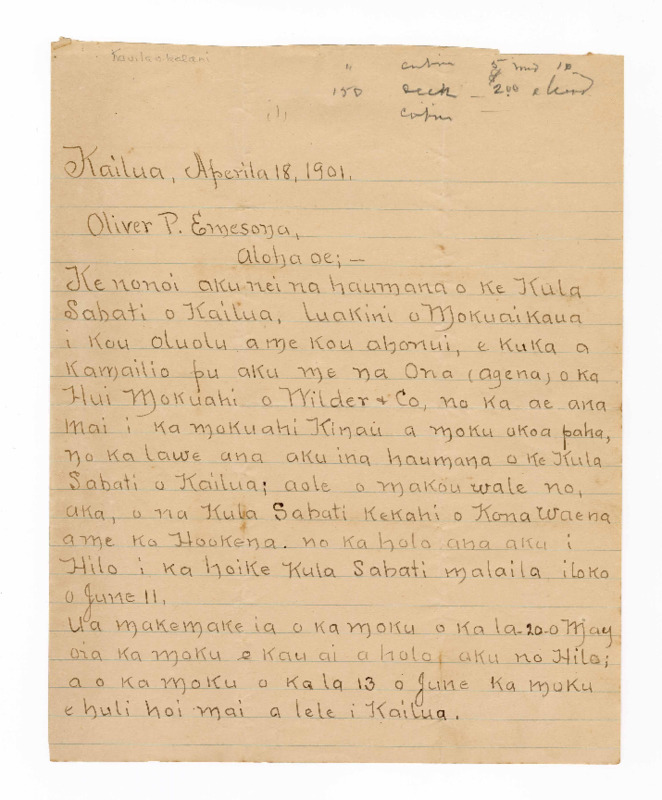 Kavila o kalani
" cabin 5 and 10
150 deck - $2.00 a
cabin
Kailua, Aperila 18, 1901.
Oliver P. Emesona,
Aloha oe; —
Ke nonoi aku nei na haumana o ke Kula
Sabati o Kailua, luakini o Mokuaikaua
i kou oluolu ame kou ahonui, e kuka a
kamailio pu aku me na Ona (agena) o ka
Hui Mokuahi o Wilder & Co, no ka ae ana
mai i ka mokuahi Kinau a moku okoa paha,
no ka lawe ana aku ina haumana o ke Kula
Sabati o Kailua; aole o makou wale no,
aka, o na Kula Sabati kekahi o Kona Waena
ame ko Hookena. no ka holo ana aku i
Hilo i ka hoike Kula Sabati malaila iloko
o June 11,
Ua makemake ia o ka moku o ka la 20 o May
oia ka moku e kau ai a holo aku no Hilo;
a o ka moku o ka la 13 o June ka moku
e huli hoi mai a lele i Kailua.